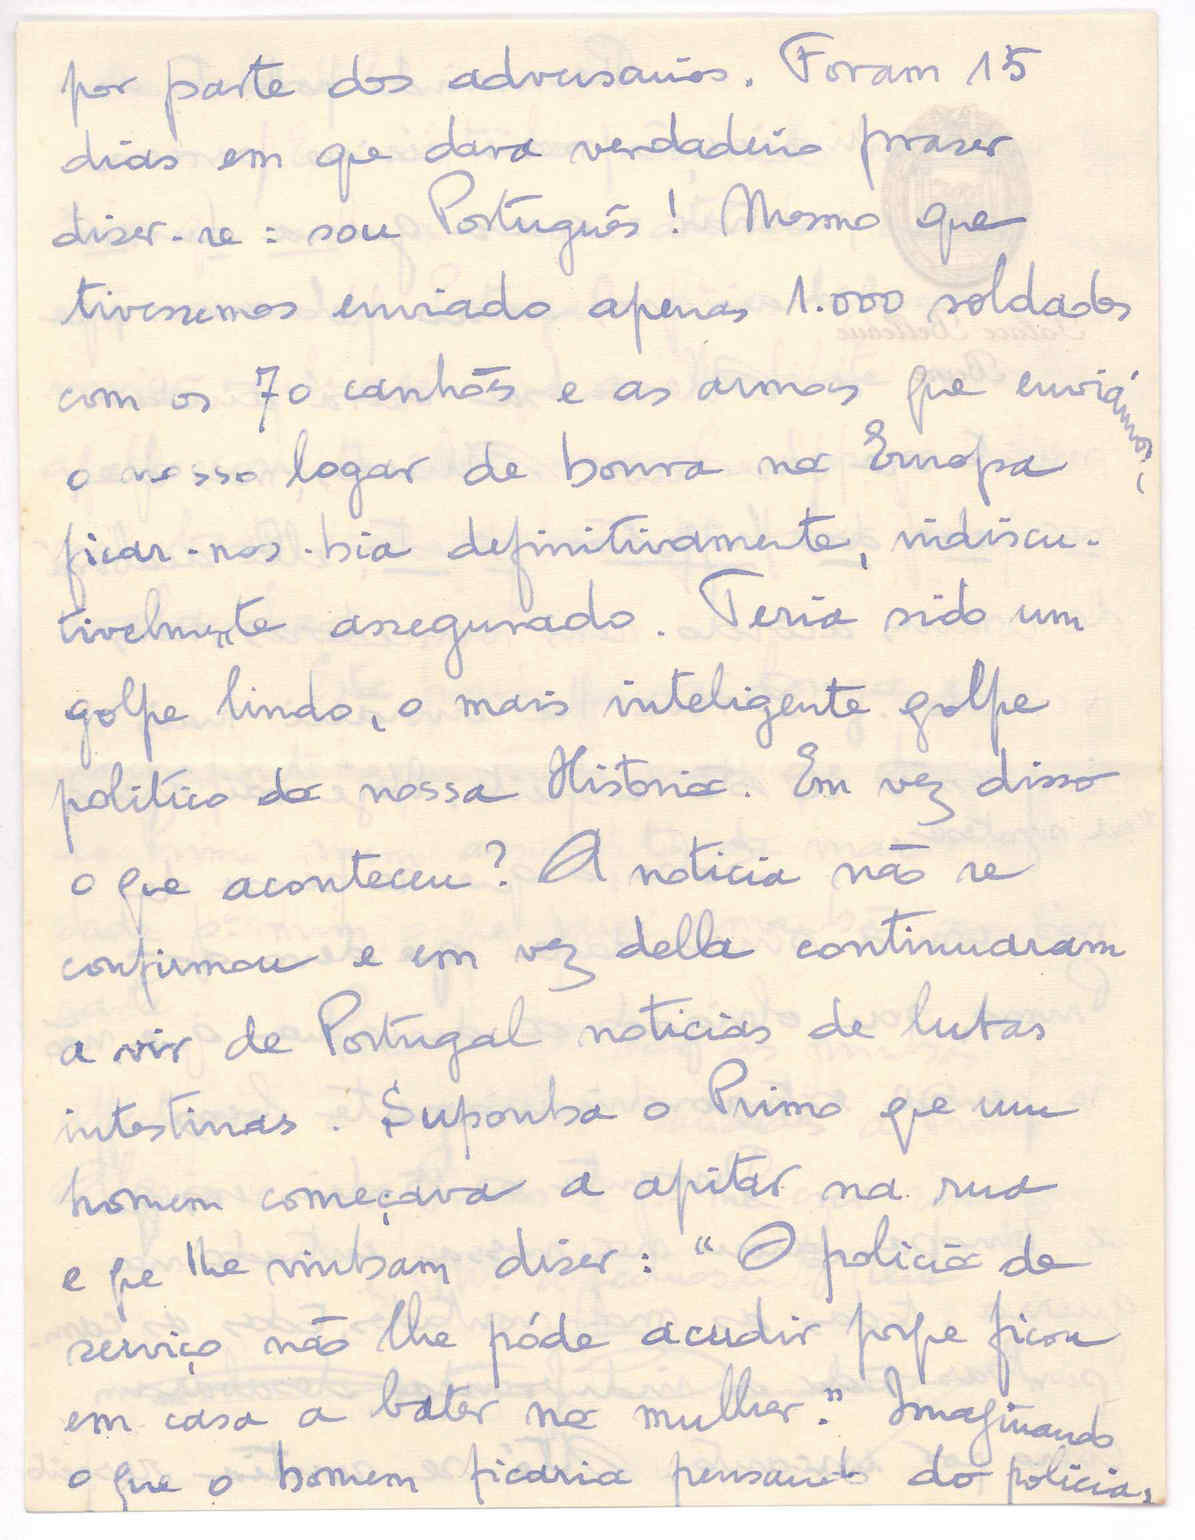 por parte dos adversarios. Foram 15
dias em que dava verdadeiro praser
diser-se: sou Português! Mesmo que
tivessemos enviado apenas 1.000 soldados
com os 70 canhões e as armas que enviámos,
o nosso logar de honra na Europa
ficar-nos-hia definitivamente, indiscu-
tivelmente assegurado. Teria sido um
golpe lindo, o mais inteligente golpe
politico da nossa Historia. Em vez disso
o que aconteceu? A noticia não se
confirmou e em vez della continuaram
a vir de Portugal noticias de lutas
intestinas. Suponha o Primo que um
homem começava a apitar na rua
e qe lhe vinham diser: "O policia de
serviço não lhe póde acudir porqe ficou
em casa a bater na mulher." Imaginando
o que o homem ficaria pensando do policia,